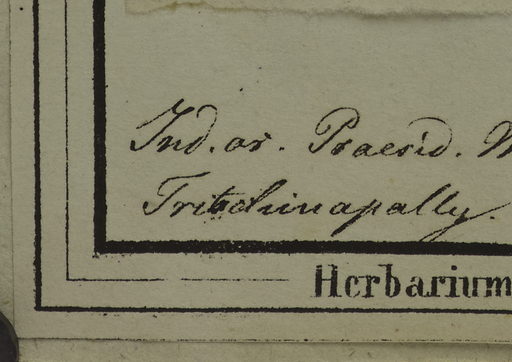 Ind. or. Praesid.
Tritschinapally.
Herbarium